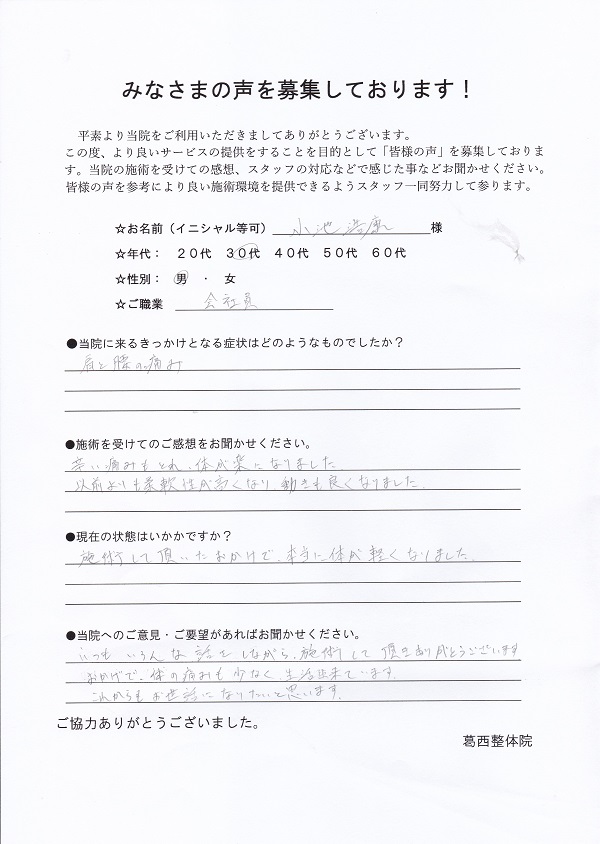 みなさまの声を募集しております！
平素より当院をご利用いただきましてありがとうございます。
この度、より良いサービスの提供をすることを目的として「皆様の声」を募集しておりま
す。当院の施術を受けての感想、スタッフの対応などで感じた事などお聞かせください。
皆様の声を参考により良い施術環境を提供できるようスタッフ一同努力して参ります。
☆お名前（イニシャル等可） 小池 様
☆年代： ２０代 ３０代 ４０代 ５０代 ６０代
☆性別： 男 ・ 女
☆ご職業 会社員
●当院に来るきっかけとなる症状はどのようなものでしたか？
肩と腰の痛み
●施術を受けてのご感想をお聞かせください。
辛い痛みもとれ、体が楽になりました。
以前よりも柔軟性が高くなり、動きも良くなりました。
●現在の状態はいかかですか？
施術して頂いたおかげで、本当に体が軽くなりました。
●当院へのご意見・ご要望があればお聞かせください。
いつも いろんな話をしながら、施術して頂きありがとうございます
おかげで、体の痛みも少なく、生活出来ています。
これからもお世話になりたいと思います。
ご協力ありがとうございました。
葛西整体院